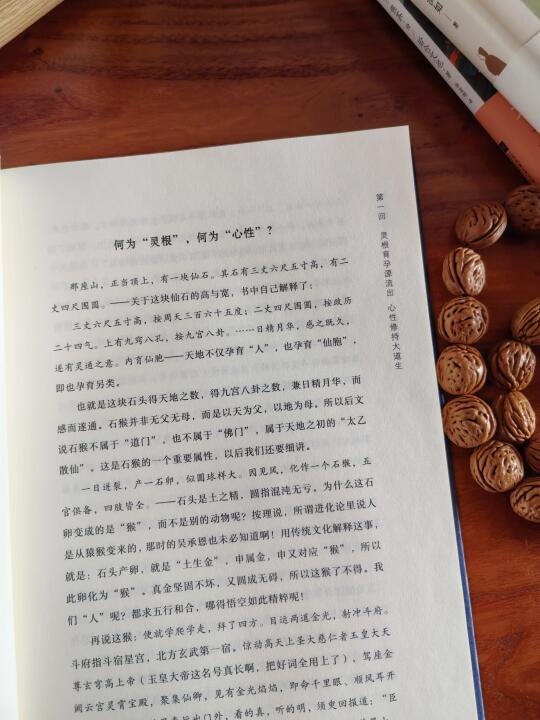 第一回 灵根育孕源流出 心性修持大道生
何为“灵根”，何为“心性”？
那座山，正当顶上，有一块仙石。其石有三丈六尺五寸高，有二
丈四尺围圆。——关于这块仙石的高与宽，书中自己解释了：
三丈六尺五寸高，按周天三百六十五度；二丈四尺围圆，按政历
二十四气。上有九窍八孔，按九宫八卦。……日精月华，感之既久，
遂有灵通之意。内育仙胞——天地不仅孕育“人”，也孕育“仙胞”，
即也孕育另类。
也就是这块石头得天地之数，得九宫八卦之数，兼日精月华，而
感而遂通。石猴并非无父无母，而是以天为父，以地为母。所以后文
说石猴不属于“道门”，也不属于“佛门”，属于天地之初的“太乙
散仙”。这是石猴的一个重要属性，以后我们还要细讲。
一日迸裂，产一石卵，似圆球样大。因见风，化作一个石猴，五
官俱备，四肢皆全。——石头是土之精，圆指混沌无亏。为什么这石
卵变成的是“猴”，而不是别的动物呢？按理说，所谓进化论里说人
是从猿猴变来的，那时的吴承恩也未必知道啊！用传统文化解释这事，
就是：石头产卵，就是“土生金”，申属金，申又对应“猴”，所以
此卵化为“猴”。真金坚固不坏，又圆成无碍，所以这猴了不得。我
们“人”呢？都求五行和合，哪得悟空如此精粹呢！
再说这猴：使就学爬学走，拜了四方。目运两道金光，射冲斗府。
斗府指斗宿星宫，北方玄武第一宿。惊动高天上圣大慈仁者玉皇大天
尊玄穹高上帝（玉皇大帝这名号真长啊，把好词全用上了），驾座金
阙云宫灵霄宝殿，聚集仙卿，见有金光焰焰，即命千里眼、顺风耳开
出门外，看的真，听的明，须臾回报道：“臣